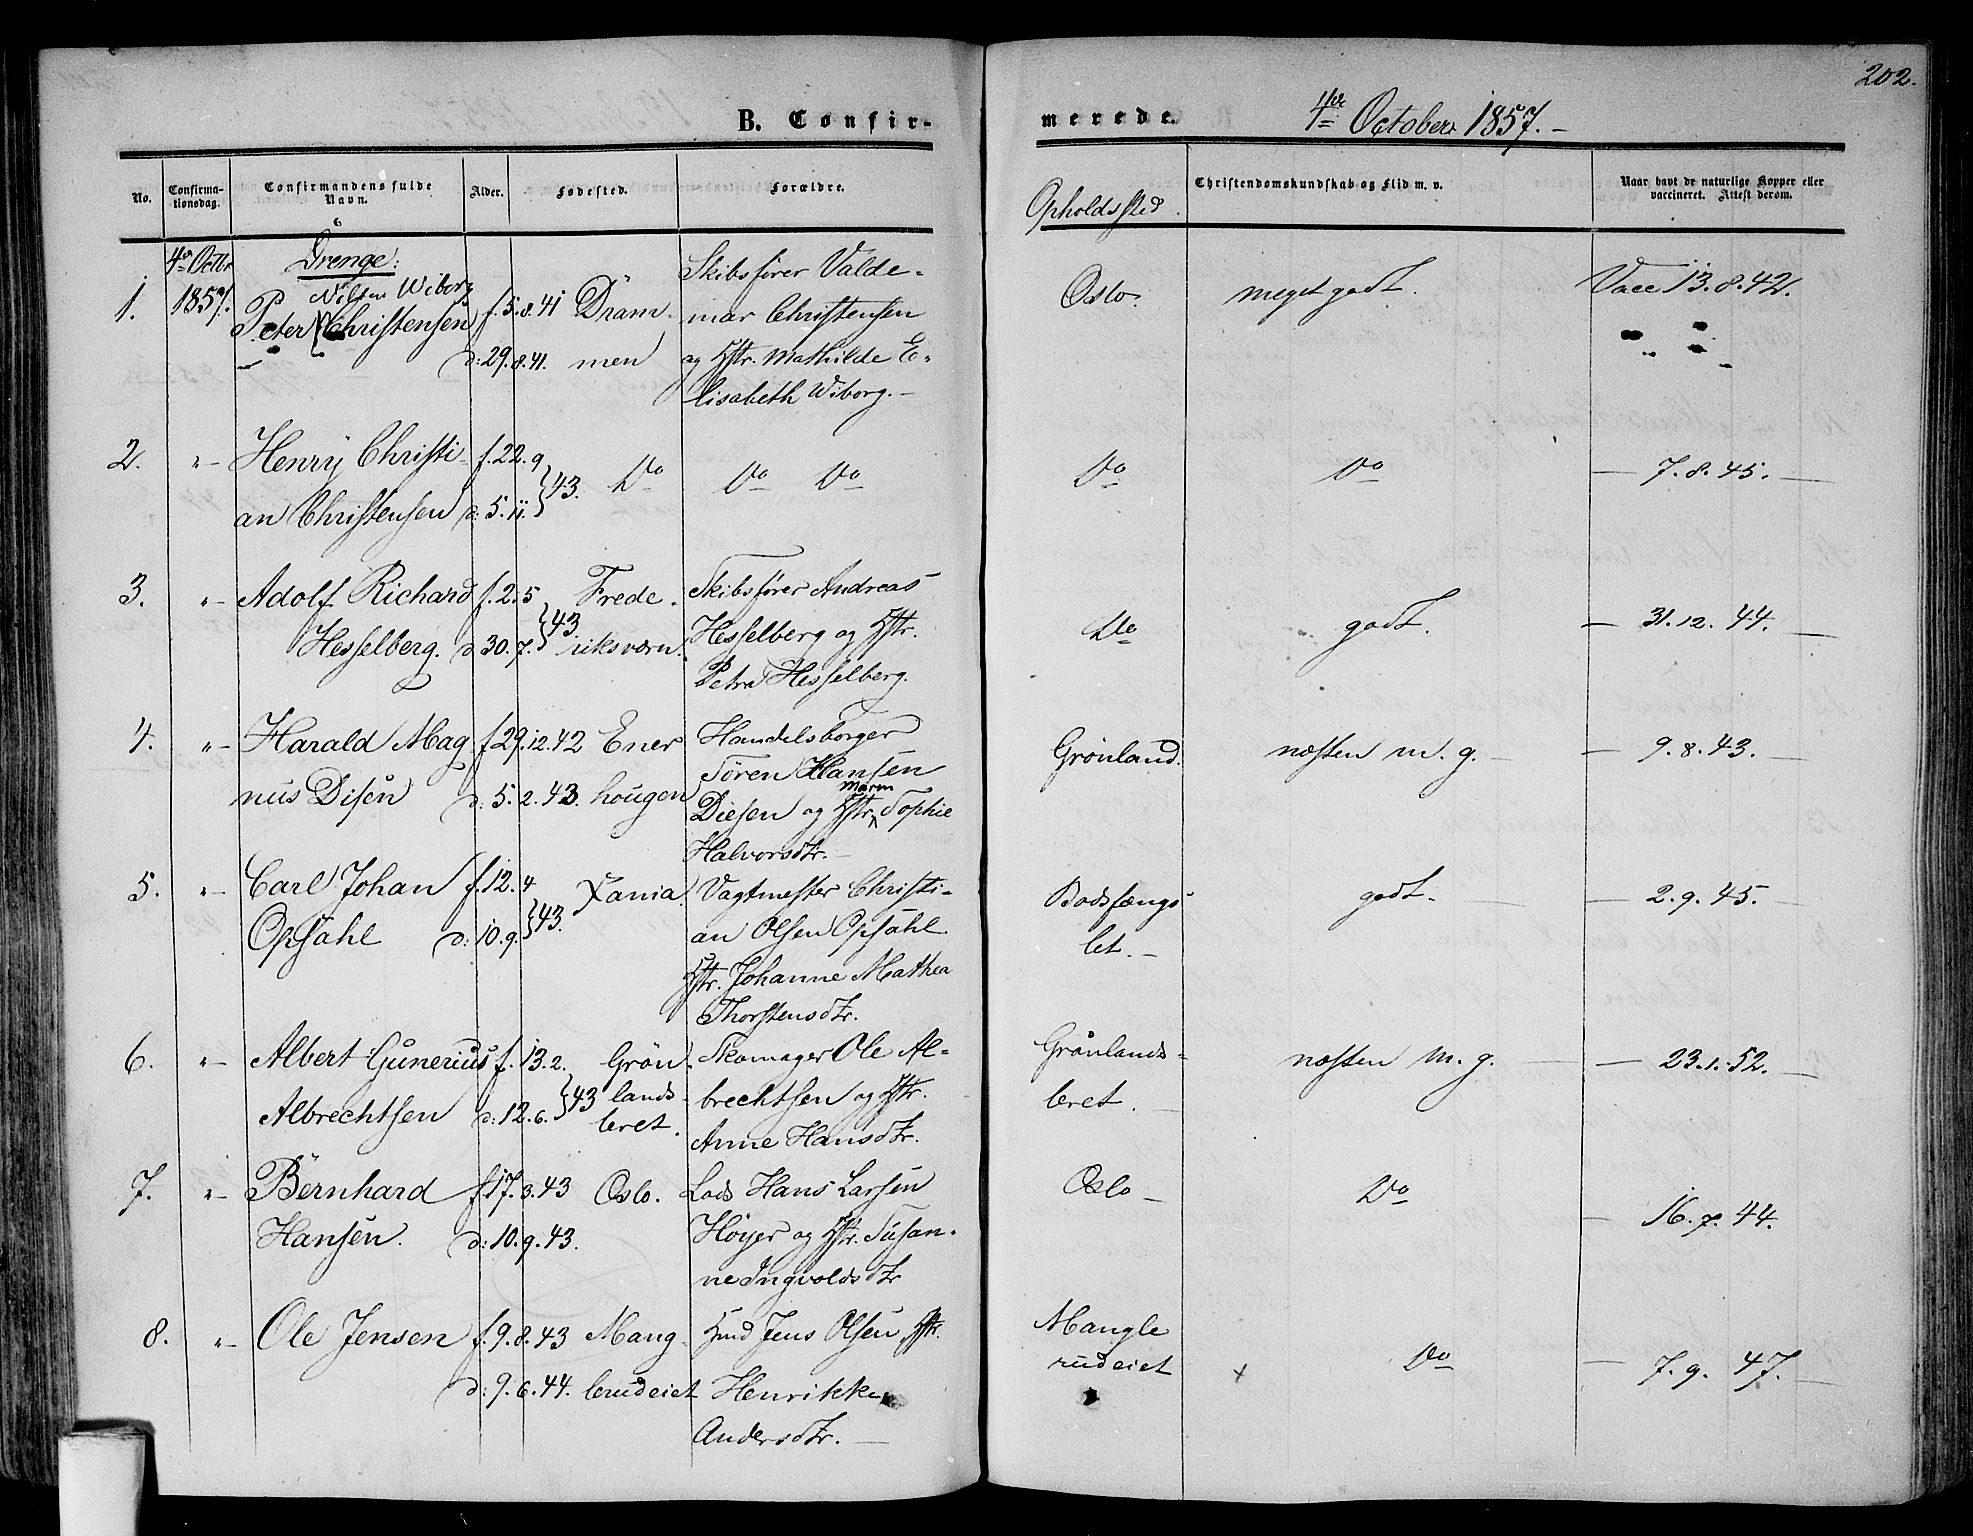 202.
B. Confirmerede. 4de October 1857.
No. Confirmationsdag. Confirmandens fulde Navn. Alder. Fødested. Forældre. Opholdssted. Christendomskundskab og Flid m. v. Naar havt de naturlige Kopper eller vaccineret. Attest derom.
6
4de Octbr 1857. Drenge:
1. Peter Nilsen Wiborg Christensen
f. 5.8.41
d: 29.8.41.
Drammen
Skibsfører Valde-
mar Christensen
og Hstr. Mathilde E-
lisabeth Wiborg.
Oslo.
meget godt.
Vacc 13.8.42.
2. "- Henry Christi-
an Christensen
f. 22.9
d: 5.11. } 43.
Do
Do Do
Do
Do
— 7.8.45. —
3. "- Adolf Richard
Hesselberg.
f. 2.5
d 30.7. } 43.
Frede-
riksværn.
Skibsfører Andreas
Hesselberg og Hstr.
Petra Hesselberg.
Do
godt.
— 31.12.44. —
4. "- Harald Mag
nus Disen
f. 29.12.42
d: 5.2.43.
Ener
hougen
Handelsborger
Sören Hansen
Diesen og Hstr. Maren Sophie
Halvorsdtr.
Grönland.
næsten m. g.
— 9.8.43. —
5. "- Carl Johan
Opsahl
f. 12.4
d: 10.9. } 43.
Xania.
Vagtmester Christi-
an Olsen Opsahl
Hstr. Johanne Mathea
Thorstensdtr.
Bodsfængs
let.
godt.
— 2.9.45. —
6. "- Albert Gunerius
Albrechtsen
f. 13.2.
d: 12.6. } 43
Grön
lands-
leret.
Skomager Ole Al-
brechtsen og Hstr.
Anne Hansdtr.
Grönlands-
leret.
næsten m. g.
— 23.1.52. —
7. "- Bernhard
Hansen.
f. 17.3.43
d: 10.9.43.
Oslo.
Lods Hans Larsen
Höyer og Hstr. Susan-
ne Ingvoldsdtr
Oslo
Do
— 16.7.44.
8. "- Ole Jensen
f. 9.8.43
d: 9.6.44.
Mang-
lerudeiet
Hmd Jens Olsen, Hstr.
Henrikke
Andersdtr.
Mangle
rudeiet
x Do
— 7.9.47. —